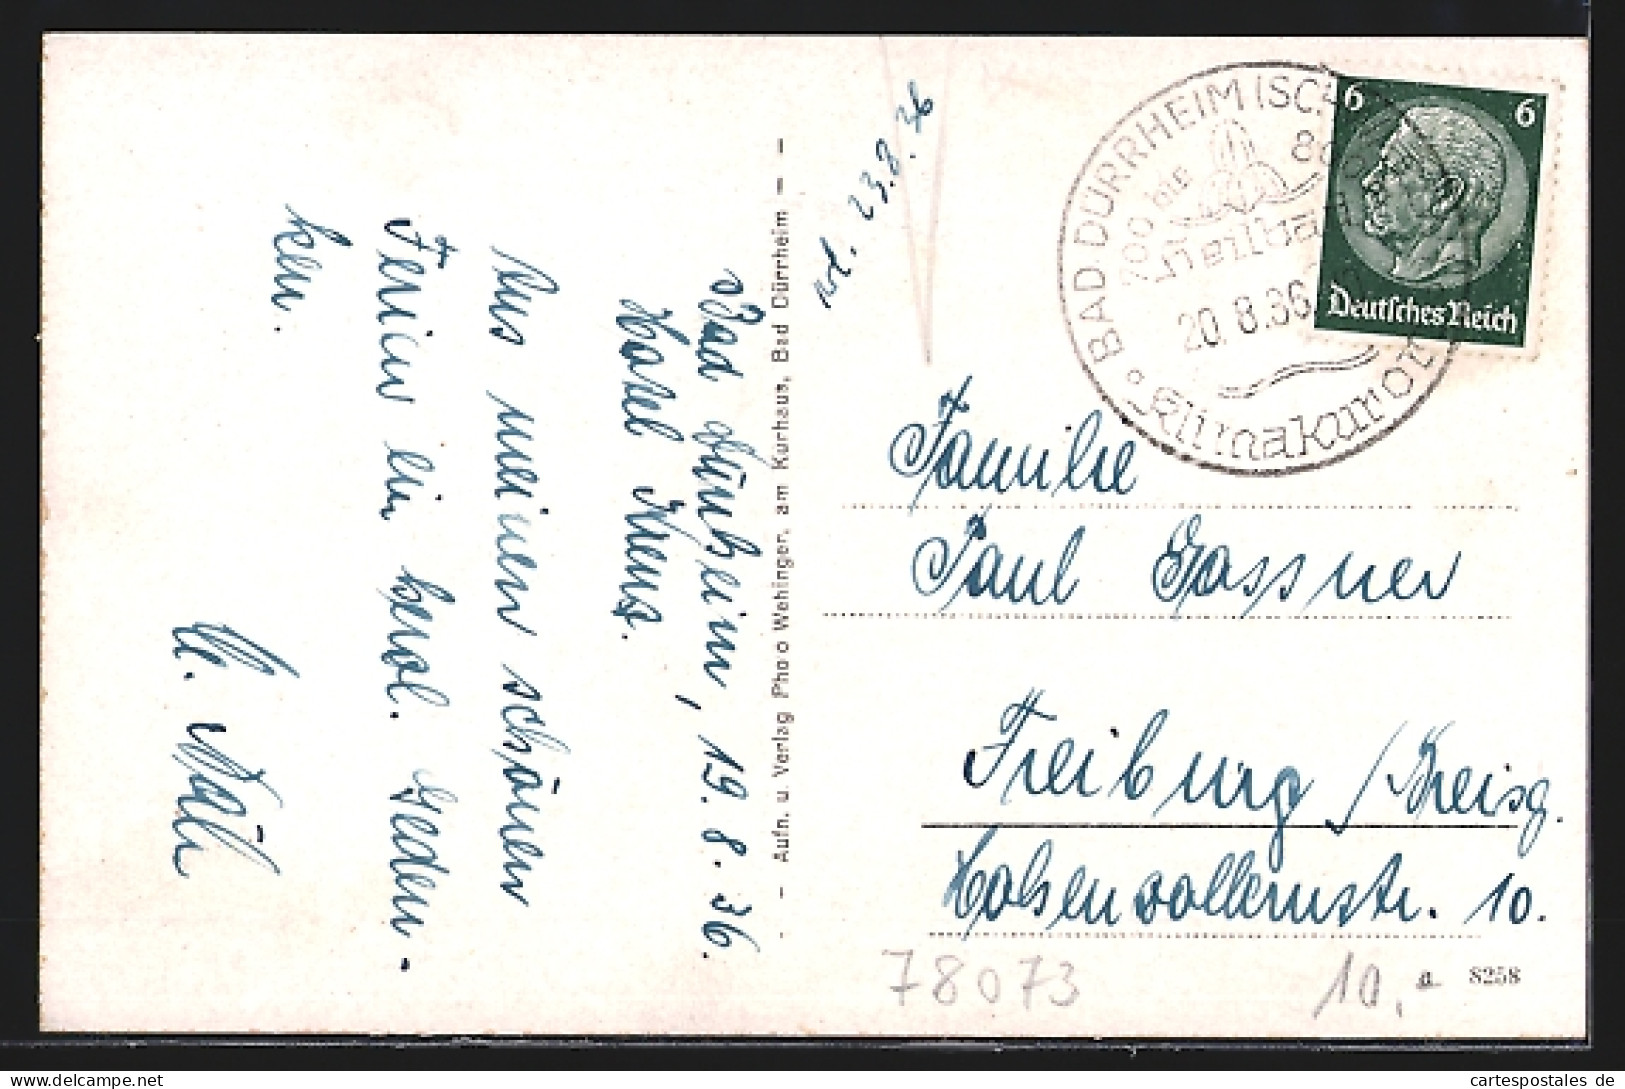 Bad Dürrheim, 19.8.36.
Hotel Kreuz.
Aus meinen schönen
Ferien ein herzl. Geden-
ken.
- Aufn. u. Verlag Photo Wehinger, am Kurhaus, Bad Dürrheim -
23.8.36
BAD DÜRRHEIM (SCH
700 bis 80
20.8.36
Klimakurort
6 6
Deutsches Reich
Familie
Paul Gassner
Freiburg /Breisg.
Hohenzollernstr. 10.
78073
10,-
a 8258
cartespostales de